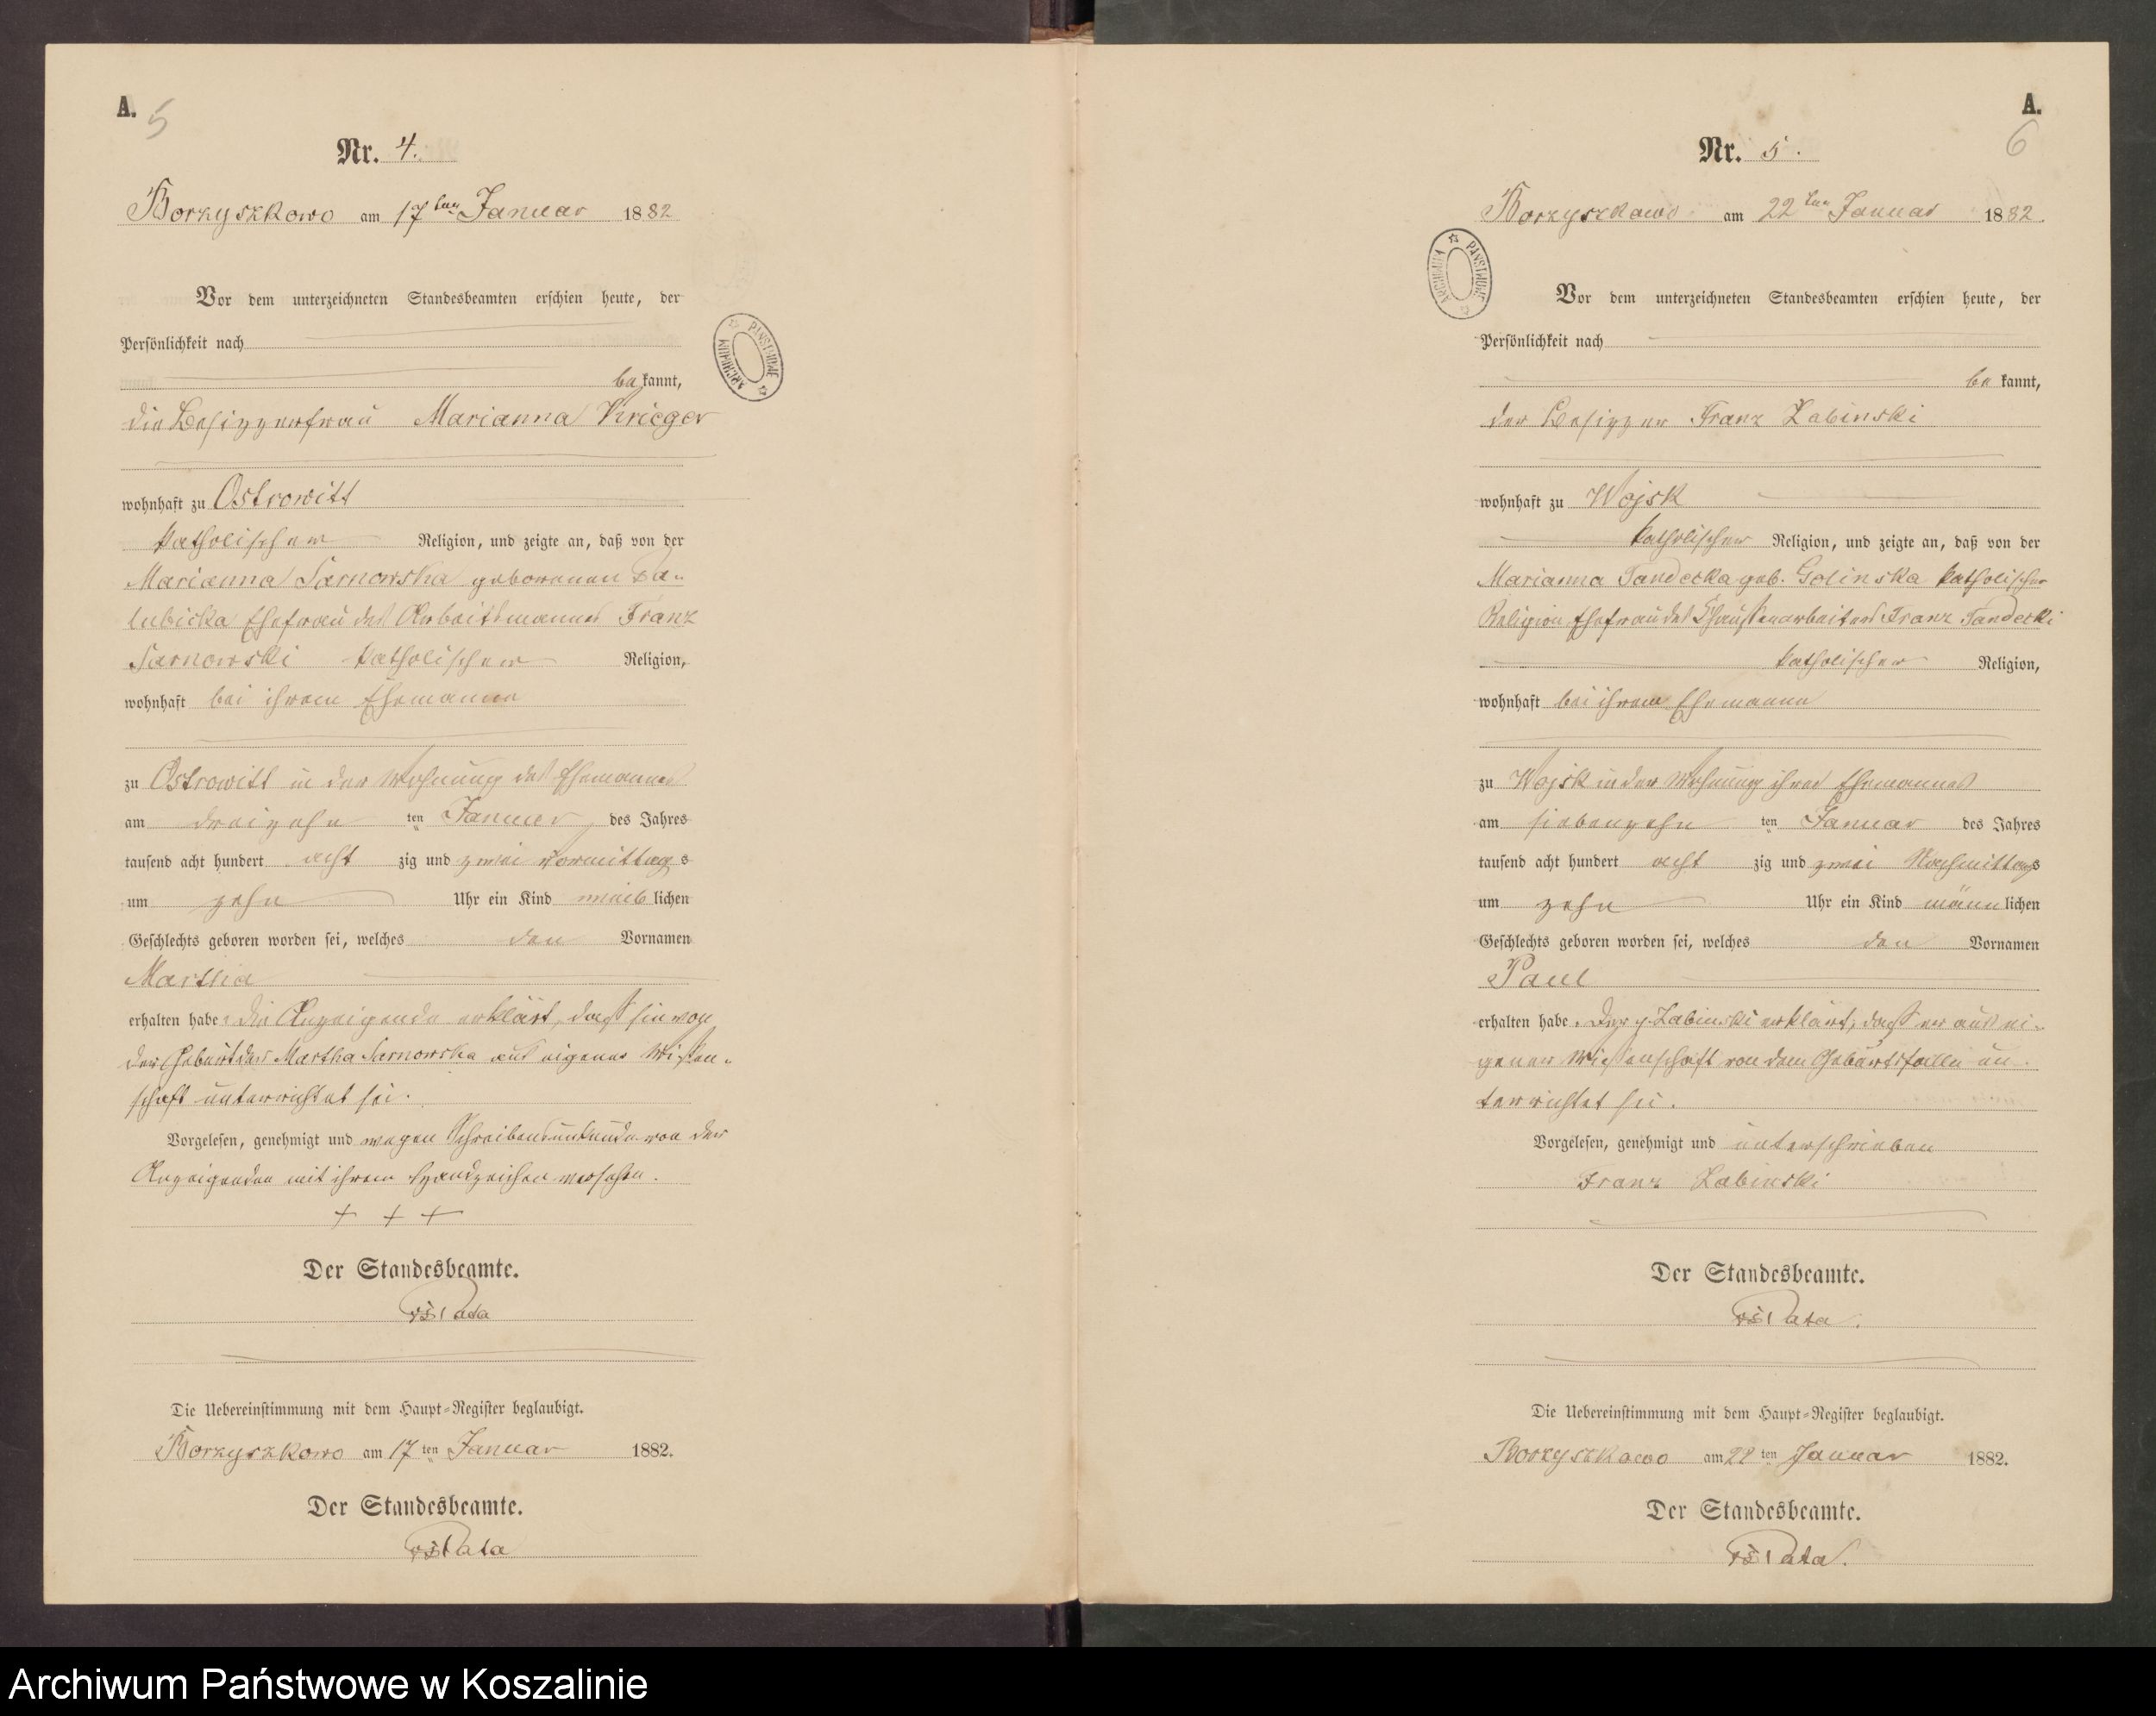 A.
5
Nr. 4.
Borzyszkowo am 17ten Januar 1882
Vor dem unterzeichneten Standesbeamten erschien heute, der
Persönlichkeit nach
be kannt,
die Besitzerfrau Marianna Krieger
wohnhaft zu Ostrowitt
katholischer Religion, und zeigte an, daß von der
Marianna Sarnowska geborenen Za-
lubicka Ehefrau des Arbeitsmannes Franz
Sarnowski katholischer Religion,
wohnhaft bei ihrem Ehemanne
zu Ostrowitt in der Wohnung des Ehemannes
am dreizehn ten Januar des Jahres
tausend acht hundert acht zig und zwei Vormittag s
um zehn Uhr ein Kind weib lichen
Geschlechts geboren worden sei, welches den Vornamen
Martha
erhalten habe. Die Anzeigende erklärt, daß sie von
der Geburt der Martha Sarnowska aus eigener Wissen-
schaft unterrichtet sei.
Vorgelesen, genehmigt und wegen Schreibensunkunde von der
Anzeigenden mit ihrem Handzeichen versehen.
+ + +
Der Standesbeamte.
Pata
Die Uebereinstimmung mit dem Haupt-Register beglaubigt.
Borzyszkowo am 17 ten Januar 1882.
Der Standesbeamte.
Pata
A.
6
Nr. 5.
Borzyszkowo am 22ten Januar 1882.
ARCHIWUM PAŃSTWOWE
Vor dem unterzeichneten Standesbeamten erschien heute, der
Persönlichkeit nach
be kannt,
der Besitzer Franz Zabinski
wohnhaft zu Wojsk
katholischer Religion, und zeigte an, daß von der
Marianna Tandecka geb. Golinska katholischer
Religion Ehefrau des Chausseearbeiters Franz Tandecki
katholischer Religion,
wohnhaft bei ihrem Ehemanne
zu Wojsk in der Wohnung ihres Ehemannes
am siebenzehn ten Januar des Jahres
tausend acht hundert acht zig und zwei Nachmittags
um zehn Uhr ein Kind männ lichen
Geschlechts geboren worden sei, welches den Vornamen
Paul
erhalten habe. Der p. Zabinski erklärt, daß er aus ei-
gener Wissenschaft von dem Geburtsfalle un-
terrichtet sei.
Vorgelesen, genehmigt und unterschrieben
Franz Zabinski
Der Standesbeamte.
Pata.
Die Uebereinstimmung mit dem Haupt-Register beglaubigt.
Borzyszkowo am 22 ten Januar 1882.
Der Standesbeamte.
Pata.
Archiwum Państwowe w Koszalinie